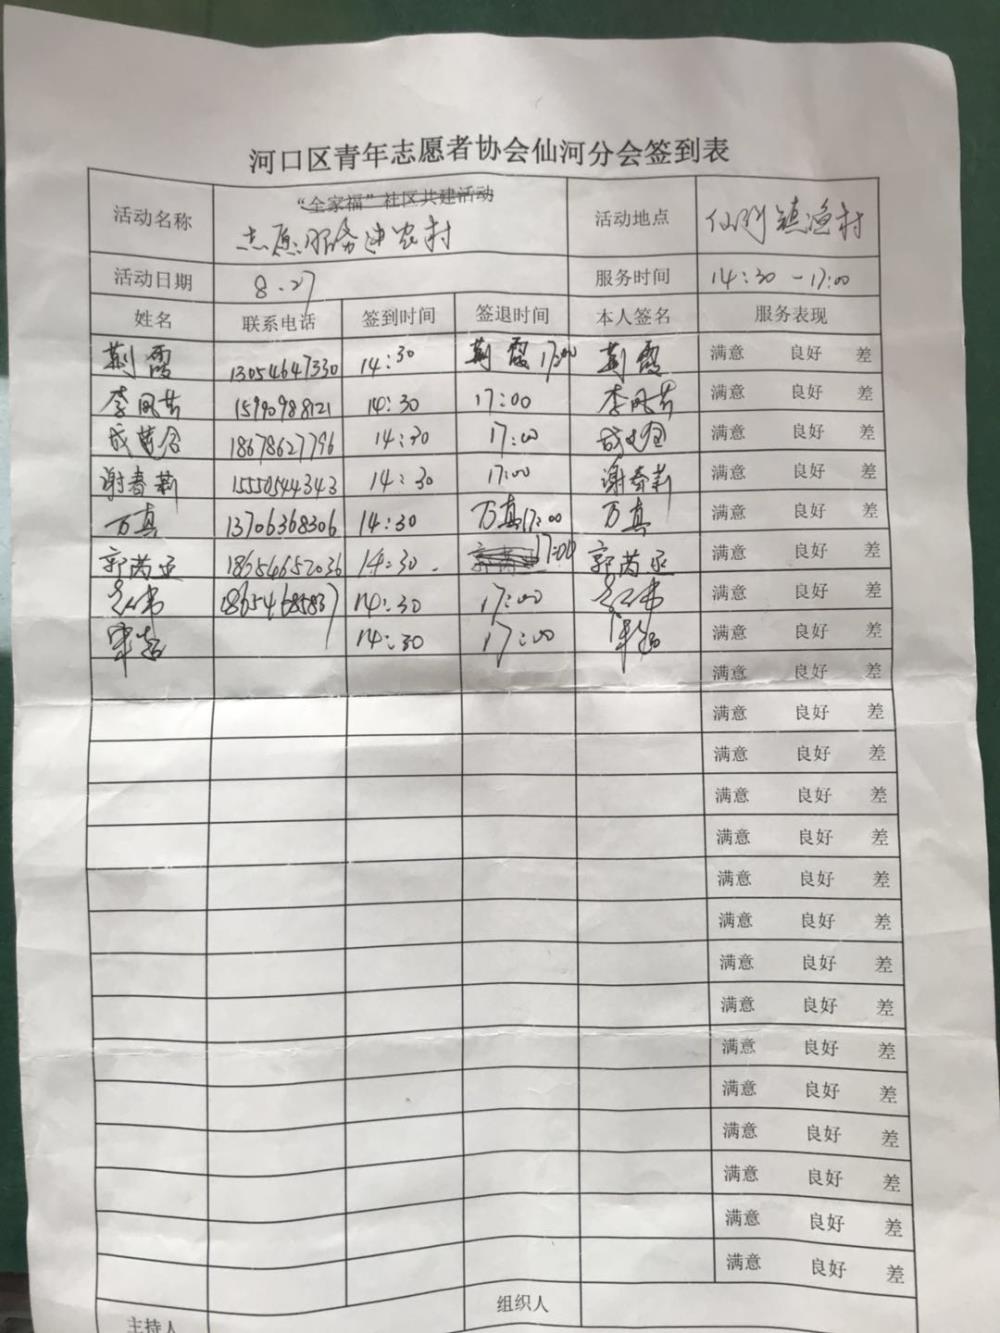 河口区青年志愿者协会仙河分会签到表
活动名称 “全家福”社区共建活动 活动地点 仙河镇渔村
志愿服务进农村
活动日期 8.27 服务时间 14:30-17:00
姓名 联系电话 签到时间 签退时间 本人签名 服务表现
荆霞 13054647330 14:30 荆霞 17:00 荆霞 满意 良好 差
李凤芹 15990988121 14:30 17:00 李凤芹 满意 良好 差
18678627796 14:30 17:00 满意 良好 差
谢春莉 15550544343 14:30 17:00 谢春莉 满意 良好 差
万真 13706368306 14:30 万真 17:00 万真 满意 良好 差
郭芮 18654652036 14:30. 17:00 郭芮 满意 良好 差
18654685837 14:30 17:00 满意 良好 差
14:30 17:00 满意 良好 差
满意 良好 差
满意 良好 差
满意 良好 差
满意 良好 差
满意 良好 差
满意 良好 差
满意 良好 差
满意 良好 差
满意 良好 差
满意 良好 差
满意 良好 差
满意 良好 差
满意 良好 差
满意 良好 差
满意 良好 差
主持人 组织人